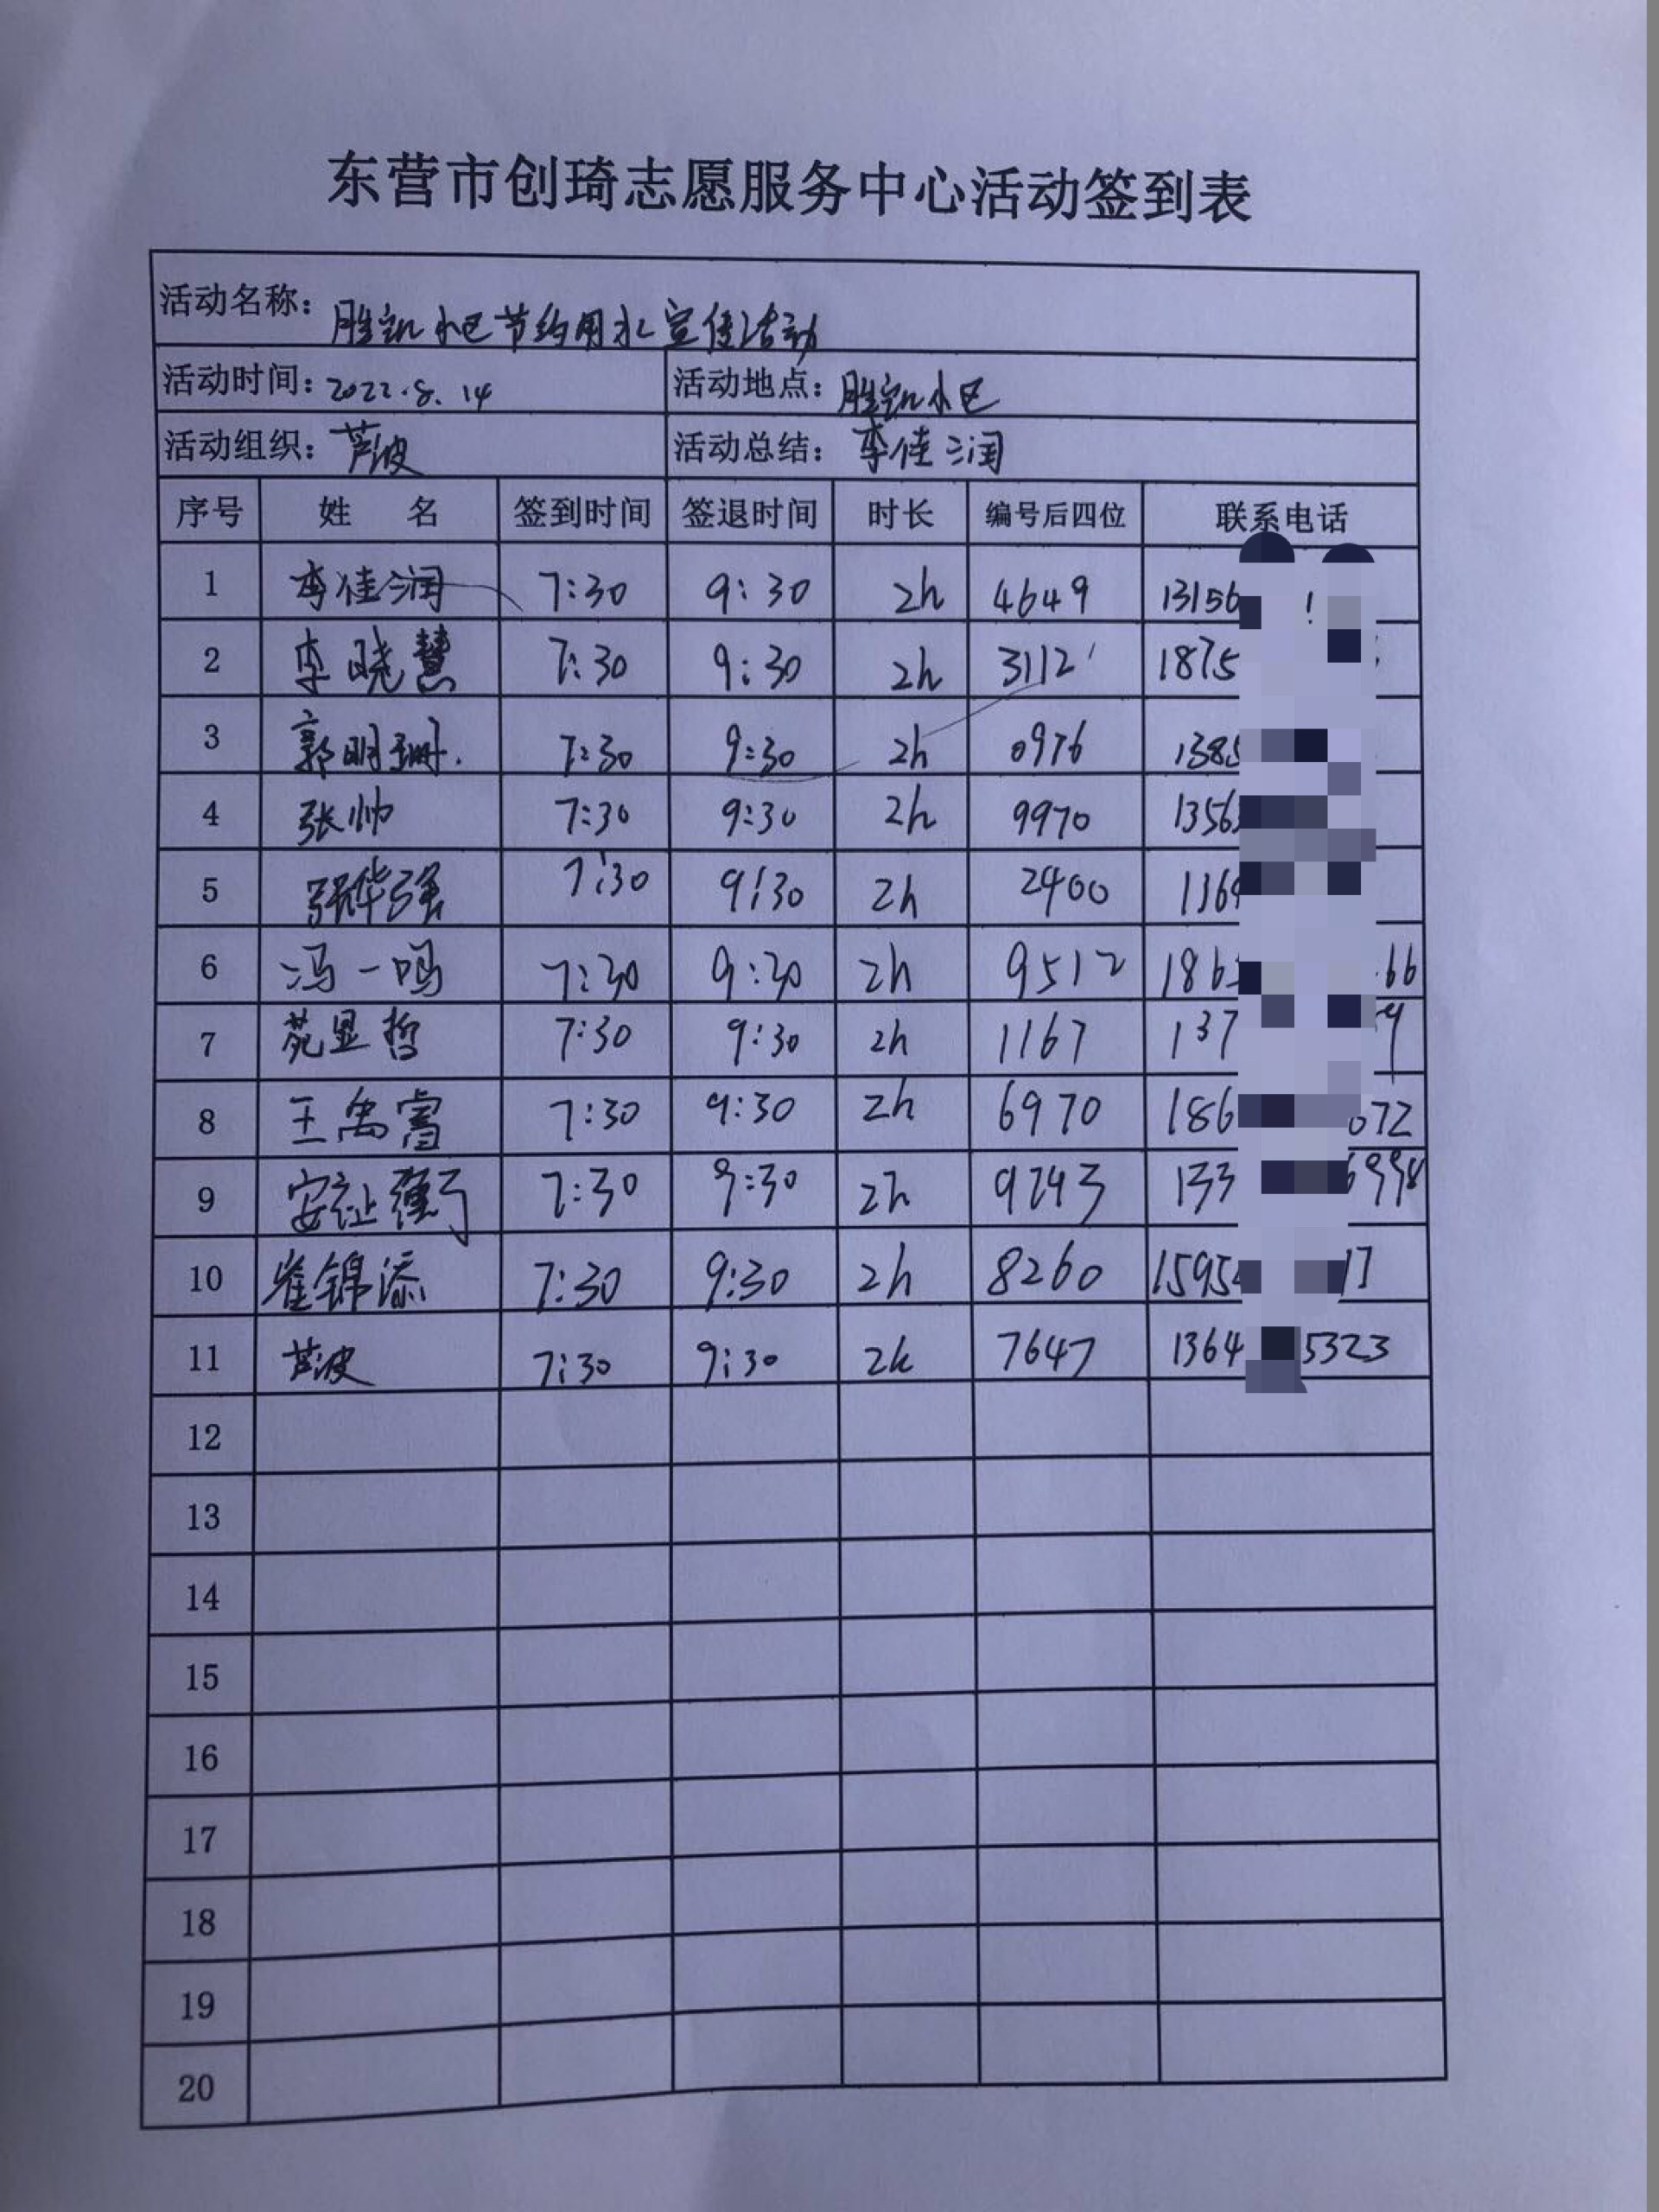 东营市创琦志愿服务中心活动签到表
活动名称：胜凯小区节约用水宣传活动
活动时间：2022.8.14 活动地点：胜凯小区
活动组织：芦波 活动总结：李佳润
序号 姓 名 签到时间 签退时间 时长 编号后四位 联系电话
1 李佳润 7:30 9:30 2h 4649 13156
2 李晓慧 7:30 9:30 2h 3112 1875
3 郭明珊. 7:30 9:30 2h 0976 1385
4 张帅 7:30 9:30 2h 9970 1356
5 张华强 7:30 9:30 2h 2400 136
6 冯一鸣 7:30 9:30 2h 9512 186 66
7 苑显哲 7:30 9:30 2h 1167 137 9
8 王禹睿 7:30 9:30 2h 6970 186 672
9 安祉衡 7:30 9:30 2h 9243 133 6998
10 崔锦添 7:30 9:30 2h 8260 1595 17
11 芦波 7:30 9:30 2h 7647 1364 5323
12
13
14
15
16
17
18
19
20